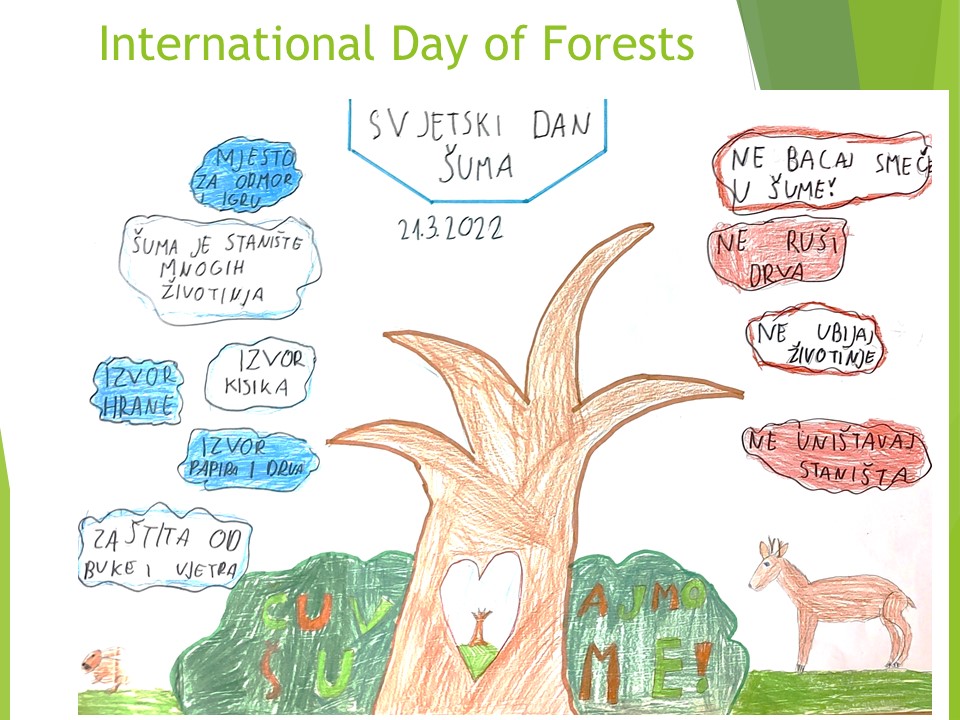 International Day of Forests
SVJETSKI DAN
ŠUMA
21.3.2022
MJESTO
ZA ODMOR
I IGRU
ŠUMA JE STANIŠTE
MNOGIH
ŽIVOTINJA
IZVOR
KISIKA
IZVOR
HRANE
IZVOR
PAPIRA I DRVA
ZAŠTITA OD
BUKE I VJETRA
NE BACAJ SMEČE
U ŠUME!
NE RUŠI
DRVA
NE UBIJAJ
ŽIVOTINJE
NE UNIŠTAVAJ
STANIŠTA
CUVAJMO
ŠUME!